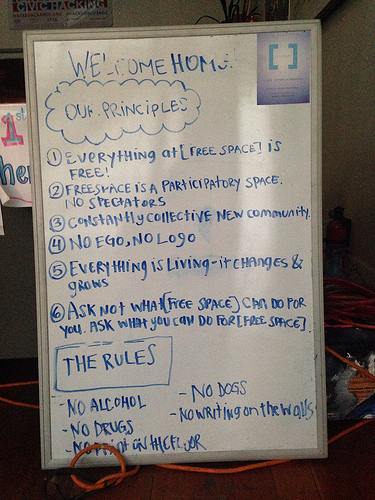 CIVIC HACKING
WELCOME HOME!
[ ]
OUR PRINCIPLES
1st
her
① EVERYTHING AT [FREE SPACE] IS
FREE!
② FREESPACE IS A PARTICIPATORY SPACE.
NO SPECTATORS
③ CONSTANTLY COLLECTIVE NEW COMMUNITY.
④ NO EGO, NO LOGO
⑤ EVERYTHING IS LIVING - IT CHANGES &
GROWS
⑥ ASK NOT WHAT [FREE SPACE] CAN DO FOR
YOU. ASK WHAT YOU CAN DO FOR [FREE SPACE].
THE RULES
- NO ALCOHOL
- NO DRUGS
- NO PAINT ON THE FLOOR
- NO DOGS
- NO WRITING ON THE WALLS